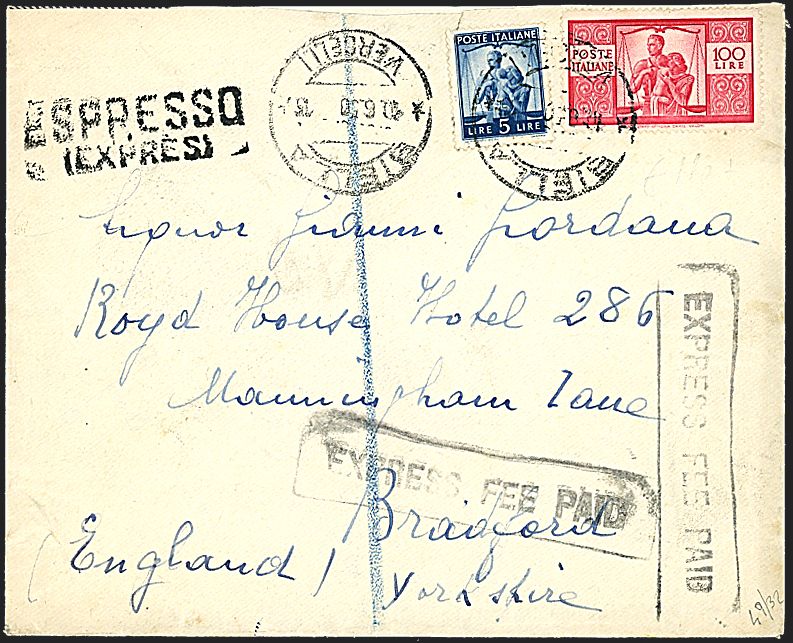 ESPRESSO
(EXPRÈS)
VERCELLI
10.6.50
BIELLA
POSTE ITALIANE
LIRE 5 LIRE
POSTE
ITALIANE
100
LIRE
BIELLA
Signor Gianni Giordana
Royd House Hotel 286
Manningham Lane
EXPRESS FEE PAID
Bradford
(England)
Yorkshire
EXPRESS FEE PAID
49/32